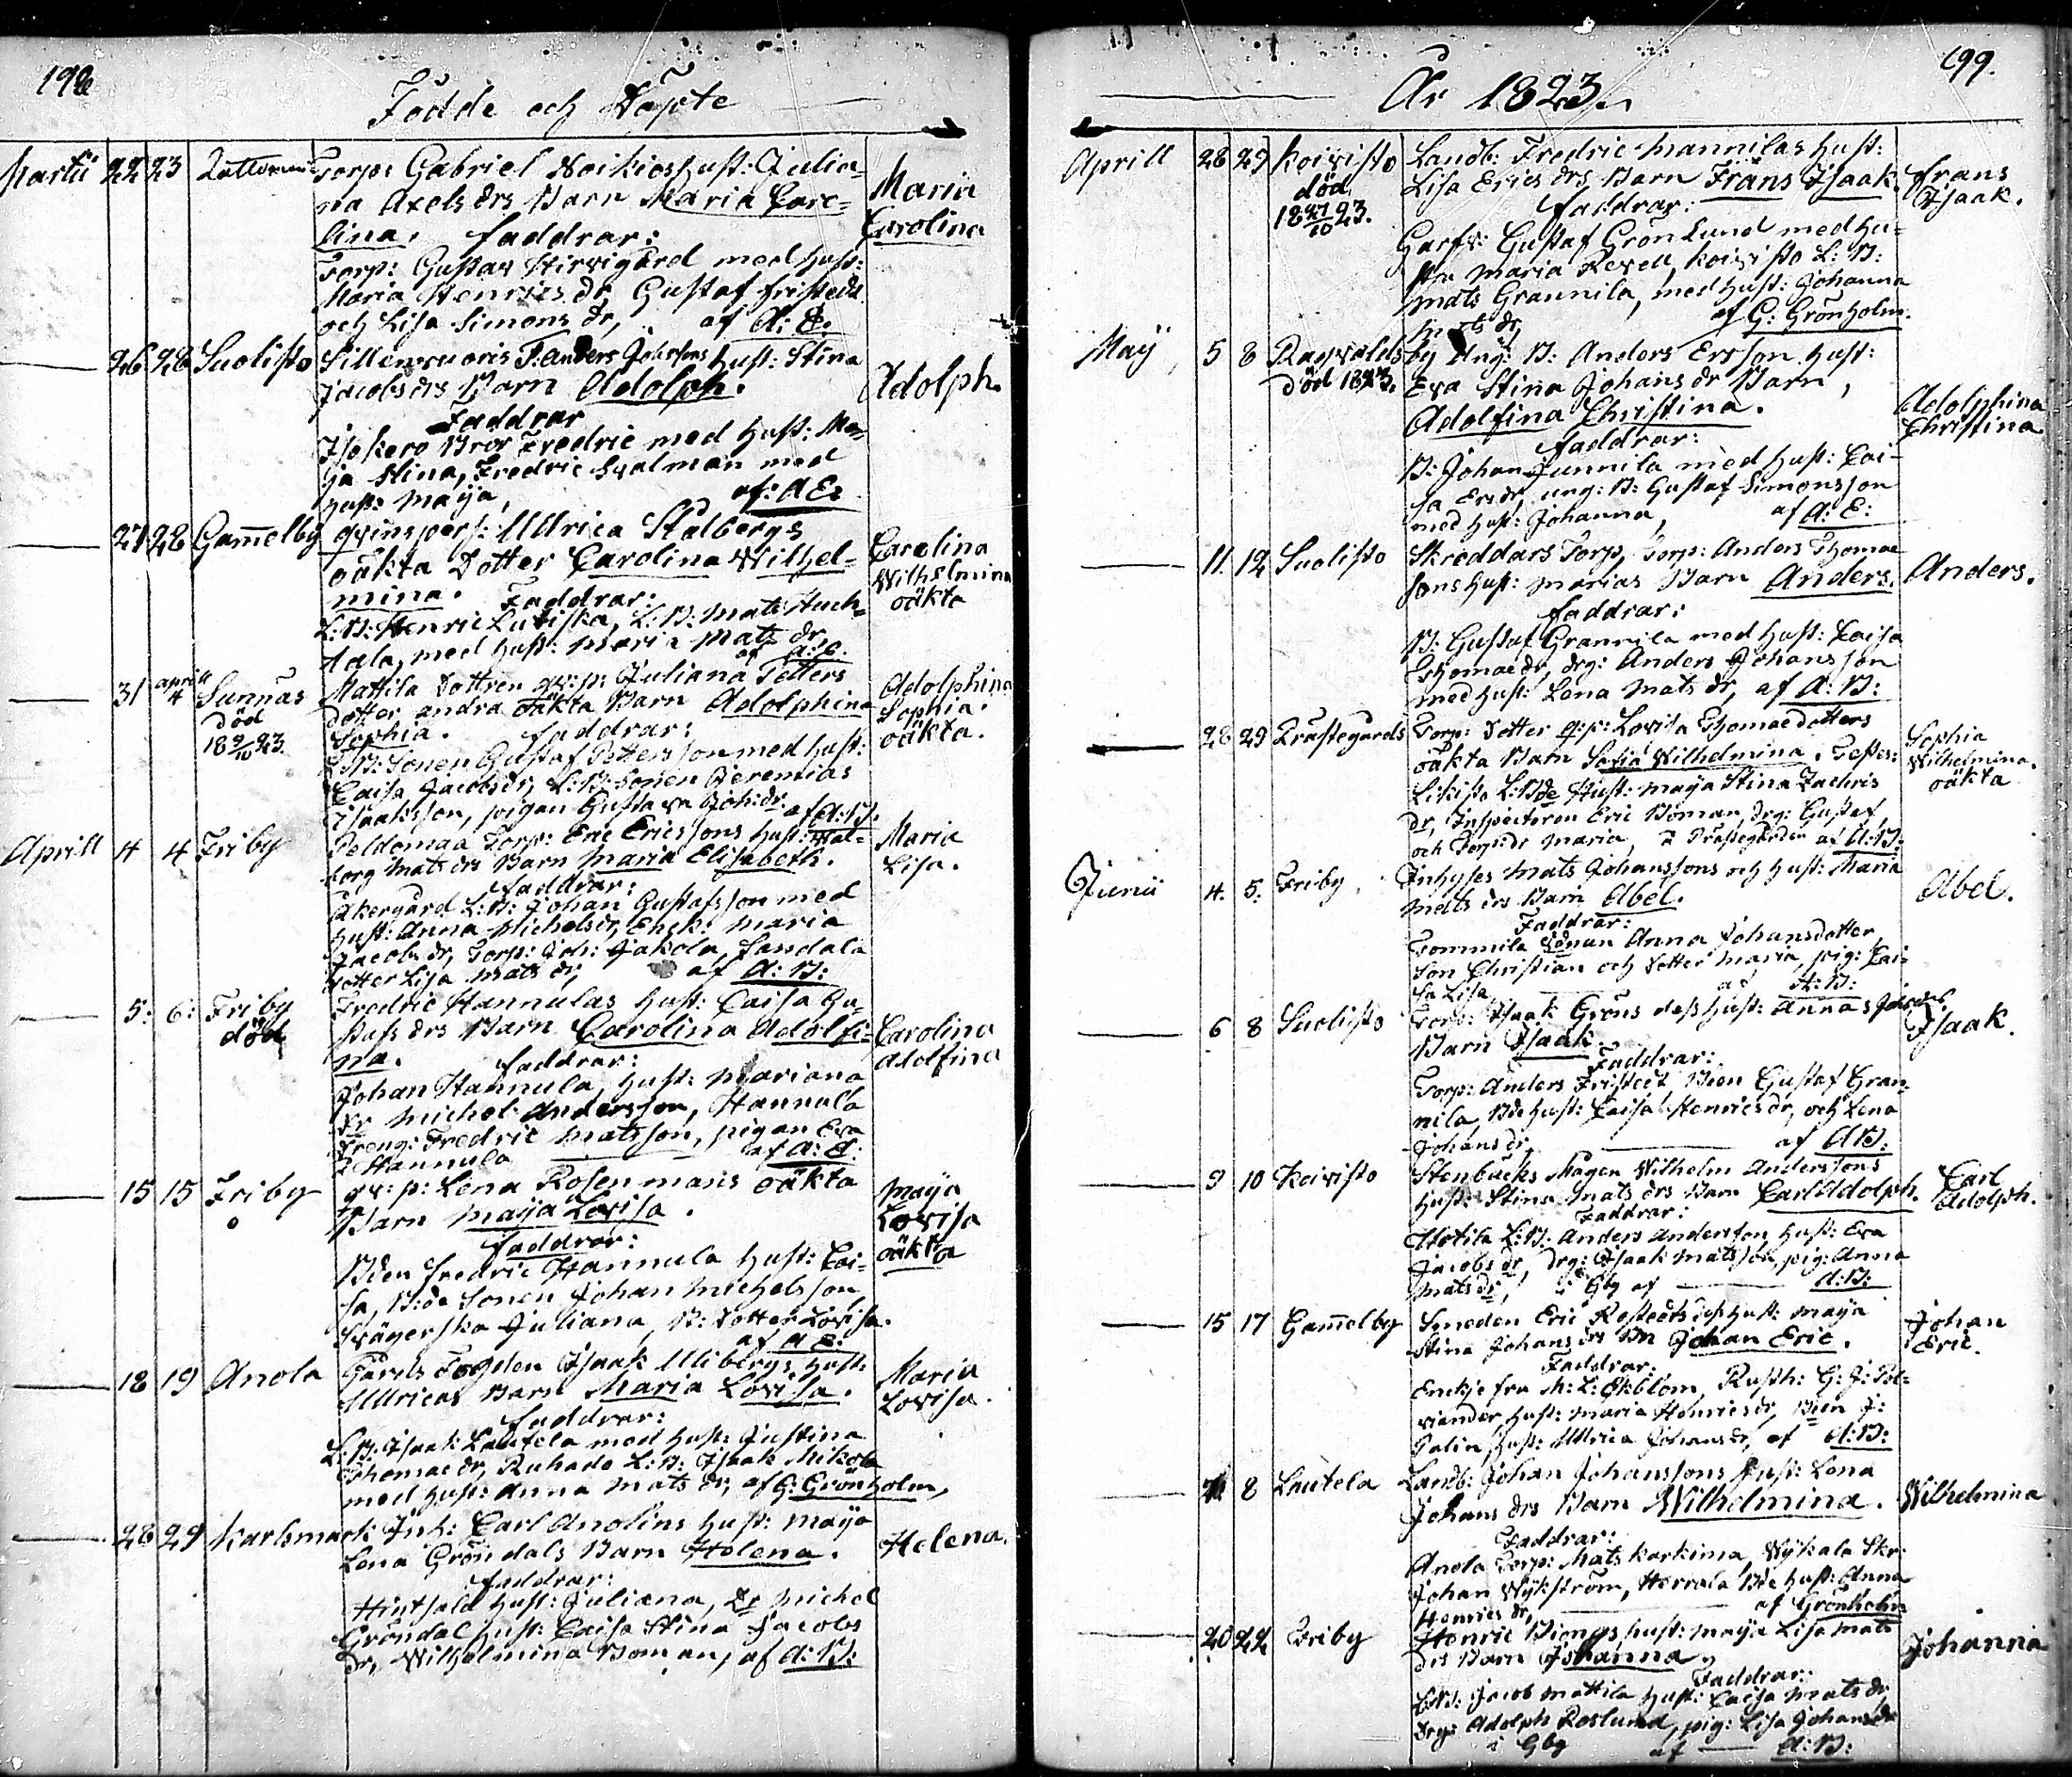 198
Födde och Döpte
Martii 22 23 Torp: Gabriel Noikios hust: Julia-
na Axels drs Barn Maria Caro-
lina. faddrar:
Maria
Carolina
Torp: Gustav Hirvigård med hust:
Maria Henrics dr, Gustaf fristedt
och Lisa Simons dr, af A: E.
26 28 Suolisto Sillenvuoris T. Anders Johssons hust: Stina
Jacobs drs Barn Adolph.
Adolph.
Faddrar
Isokero Bror Fredric med hust: Ma-
ja Stina, Fredric Svalman med
hust: Maija, af: A E:
27 28 Gam̄elby qvinspers: Ullrica Stålbergs
oäkta Dotter Carolina Wilhel-
mina. Faddrar:
Carolina
Wilhelmina
oäkta
L: B: Henric Lutiska, L: B: Mats Huch-
tala, med hust: Maria Mats dr,
af A: E.
31 aprill 4 Sunnäs Mattila Dottren qv: p: Juliana Petters
död
18 9/10 23
dotter andra oäkta Barn Adolphina
Sophia. faddrar:
Adolphina
Sophia.
oäkta.
L: B: Sonen Gustaf Pettersson med hust:
Caisa Jacobs dr, L: B: Sonen Jeremias
Isaaksson, pigan Gustava Joh: dr af A: B:
Aprill 4 4 Friby Peldomaa Torp: Eric Ericssons hust: Wal-
borg Mats drs Barn Maria Elisabeth.
Maria
Lisa.
faddrar:
Åkergård L: B: Johan Gustafsson med
hust: Anna Michels dr, Enck: Maria
Jacobs dr, Torp: Joh: Jakola, Sandala
dotter Lisa Mats dr, af A: B:
5: 6: Friby Fredric Hannulas hust: Caisa Gu-
död
stafs drs Barn Carolina Adolfi-
na. faddrar:
Carolina
Adolfina
Johan Hannula, hust: Mariana
dr Michel Andersson, Hannula
Dreng: Fredric Matsson, pigan Eva
i Hannula af A: E:
15 15 Friby qv: p: Lena Rosenmans oäkta
Barn Maija Lovisa.
Maija
Lovisa
oäkta
faddrar:
Bden Fredric Hannula hust: Cai-
sa, B: de Sonen Johan Michelsson,
Svägerska Juliana, B: Dotter Lovisa.
af A E:
18 19 Anola Gårds Fogden Isaak Ullbergs hust:
Ullricas Barn Maria Lovisa.
Maria
Lovisa.
faddrar:
L: B: Isaak Lautela med hust: Justina
Thomae dr, Ruhade L: B: Isaak Mikola
med hust: Anna Mats dr, af G: Grönholm,
28 29 Karlsmark Inh: Carl Anolins hust: Maija
Lena Gröndals Barn Helena.
Helena.
faddrar:
hust: Juliana, Dr Michel
Gröndal hust: Caisa Stina Jacobs
dr, Wilhelmina Boman, af A: B:
199.
År 1823.
Aprill 28 29 Koivisto Landb: Fredric Mannilas hust:
död
18 27/10 23.
Lisa Erics drs Barn Frans Isaak.
Frans
Isaak.
faddrar:
Garfv: Gustaf Grönlund med hu-
stru Maria Revell, Koivisto L: B:
Mats Grannila, med hust: Johanna
Mats dr, af G: Grönholm.
Maij 5 8 Ragvaldsby Ung: B: Anders Ersson hust:
död 1823.
Eva Stina Johans dr Barn,
Adolfina Christina.
Adolphina
Christina
faddrar:
B: Johan Junnila med hust: Cai-
sa Ers dr, ung: B: Gustaf Simonsson
med hust: Johanna, af A: E:
11. 12 Suolisto Skreddars Torp, Torp: Anders Thomae
sons hust: Marias Barn Anders.
Anders.
faddrar:
B: Gustaf Grannila med hust: Caisa
Thomae dr, drg: Anders Johansson
med hust: Lena Mats dr, af A: B:
28 29 Prästegårds Torp: Dotter q: p: Lovisa Thomaedotters
oäkta Barn Sofia Wilhelmina. Testes:
Sophia
Wilhelmina.
oäkta
Likisto L: Bde Hust: Maija Stina Zachris
dr, Inspectoren Eric Boman, drg: Gustaf,
och Torp: dr Maria, i Prästegården af A: B:
Junii 4. 5. Friby Inhyses Mats Johanssons och hust: Maria
Mats drs Barn Abel.
Abel.
Faddrar:
Tommila Anna Johansdotter,
Son Christian och Dotter Maria, pig: Cai-
sa Lisa, af A: B:
6 8 Suolisto Torp: Isaak Gröns dess hust: Annas
Barn Isaak.
Isaak.
Faddrar:
Torp: Anders Fristedt Bden Gustaf Gran-
nila, Bde hust: Caisa Henrics dr, och Lena
Johans dr, af AB:
9 10 Koivisto Stenbäcks Mågen Wilhelm Anderssons
hust: Stina Mats drs Barn Carl Adolph.
Carl
Adolph.
Faddrar:
L: B: Anders Andersson, hust: Eva
Jacobs dr, drg: Isaak Matsson, pig: Anna
Mats dr, i Gby af A: B:
15 17 Gam̄elby Smeden Eric Rostedts dess hust: Maija
Stina Johans drs Bn Johan Eric.
Johan
Eric.
Faddrar:
Enckje fru M: L: Ekblom, Rusth: G: J: Pol-
viander, hust: Maria Henrics dr, Bden J:
Palin, hust: Ullrica Johans dr, af A: B:
8 Lautela Landb: Johan Johanssons hust: Lena
Johans drs Barn Wilhelmina.
Wilhelmina
Faddrar:
Anola Torp: Mats Karkima, Wykala Skr:
Johan Wykström, Herrala Bde hust: Anna
Henrics dr, af Grönholm
20 22 Friby Henric hust: Maija Lisa Mats
drs Barn Johanna
Johanna
Faddrar:
L: B: Jacob Mattila hust: Caisa Mats dr
drg: Adolph Roslund, pig: Lisa Johans dr
i Gby af A: B: